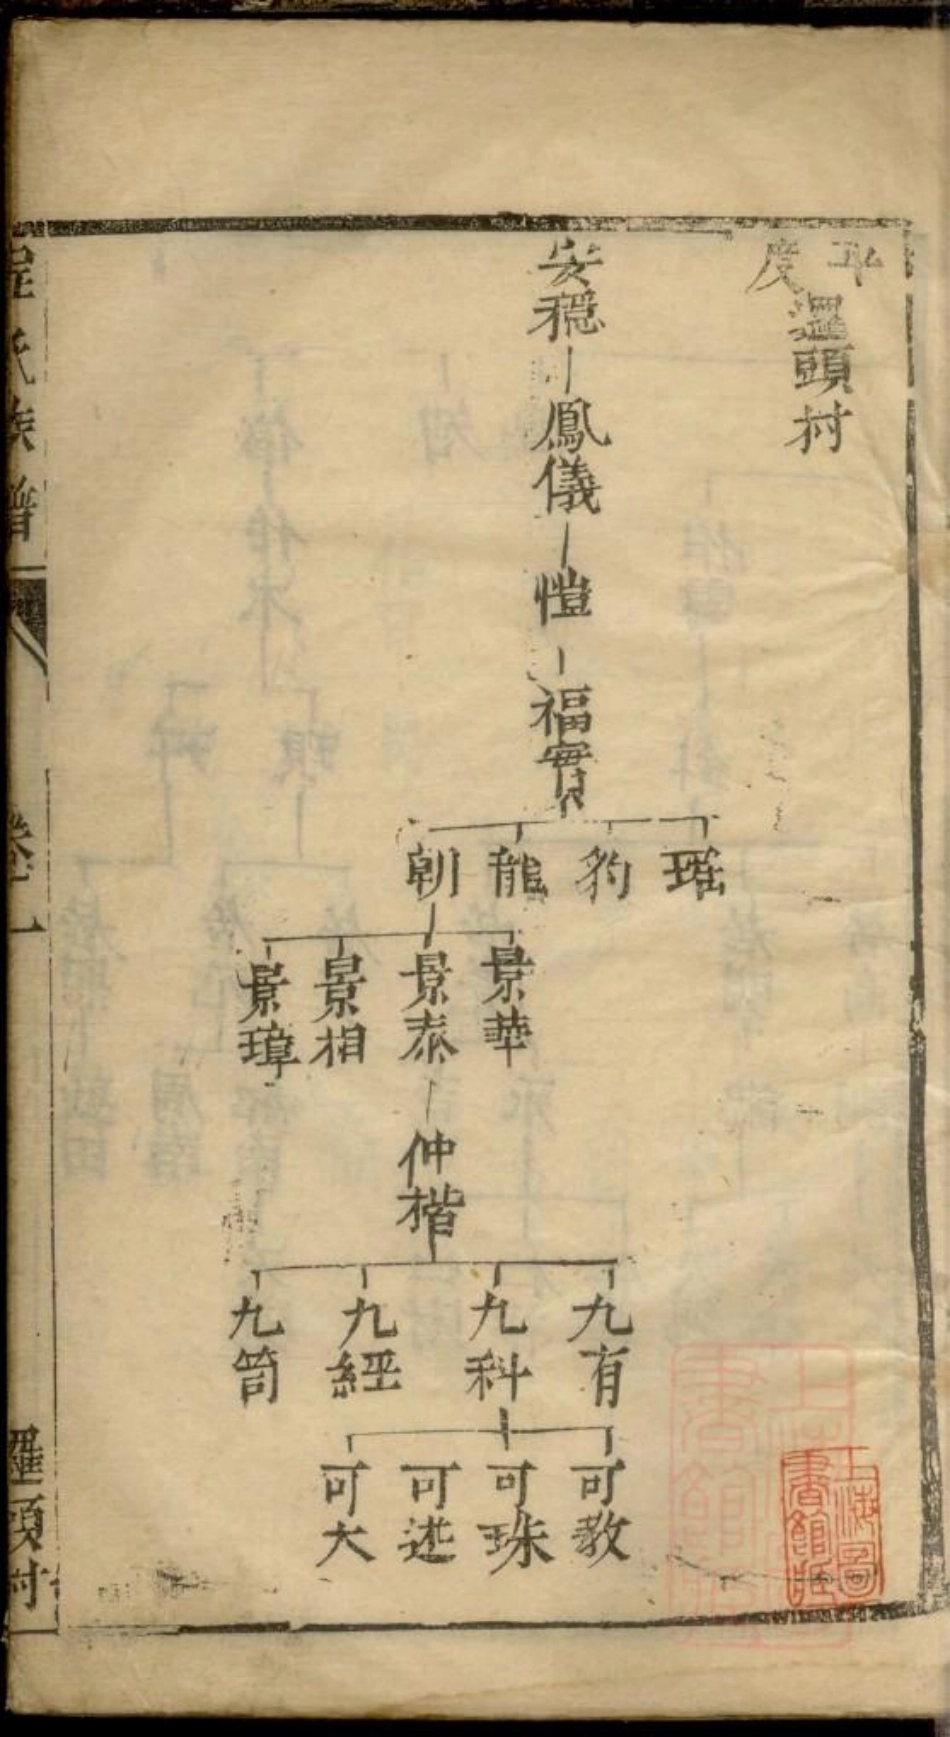 平度
邏頭村
安穩
鳳儀
愷
福實
琟
豹
龍
朝
景華
景泰
景相
景璋
仲楷
九有
九科
九經
九筒
可教
可珠
可述
可大
氏族譜
卷一
邏頭村
上海圖書館藏